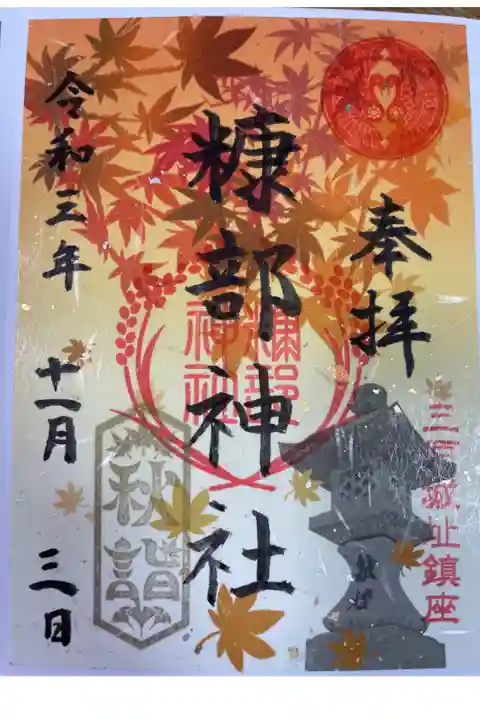 奉拝
三戸城址鎮座
糠部神社
糠部
神社
秋詣
令和三年 十一月 三日